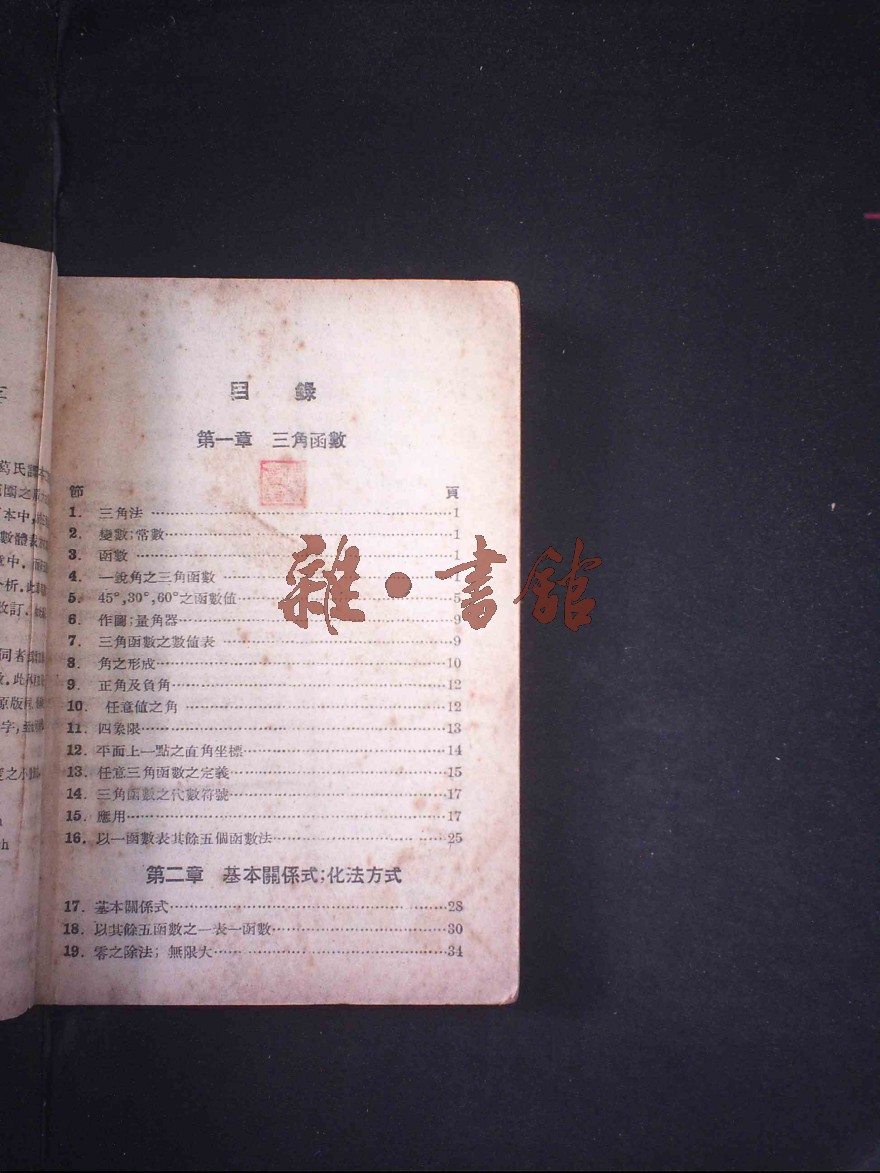 目錄
第一章 三角函數
節 頁
1. 三角法 1
2. 變數;常數 1
3. 函數 1
4. 一銳角之三角函數 1
5. 45°,30°,60°之函數値 5
6. 作圖;量角器 9
7. 三角函數之數値表 9
8. 角之形成 10
9. 正角及負角 12
10. 任意値之角 12
11. 四象限 13
12. 平面上一點之直角坐標 14
13. 任意三角函數之定義 15
14. 三角函數之代數符號 17
15. 應用 17
16. 以一函數表其餘五個函數法 25
第二章 基本關係式;化法方式
17. 基本關係式 28
18. 以其餘五函數之一表一函數 30
19. 零之除法; 無限大 34
雜·書館